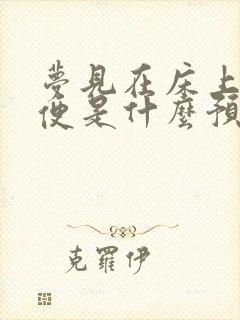 夢見在床上
便是什麼預
克羅伊